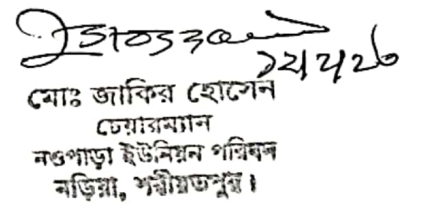 মোঃ জাকির হোসেন
চেয়ারম্যান
নওপাড়া ইউনিয়ন পরিষদ
নড়িয়া, শরীয়তপুর।